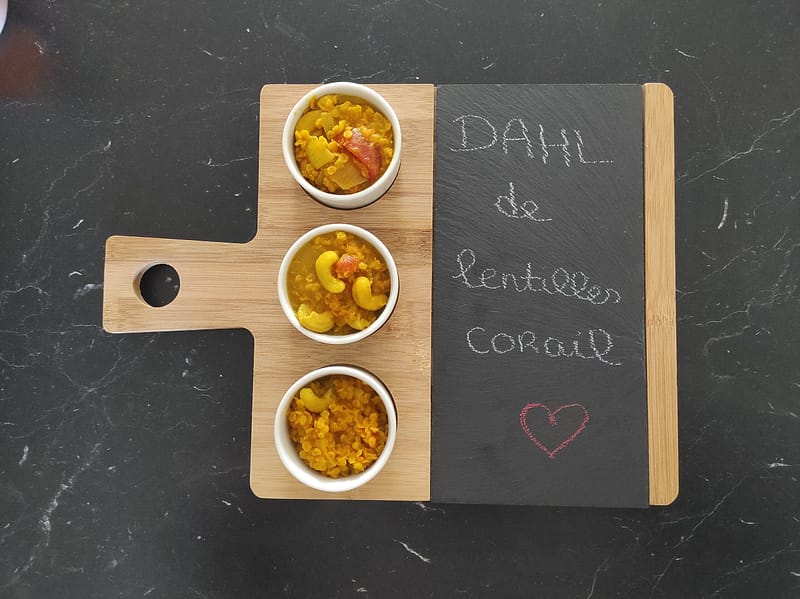 DAHL
de
lentilles
CORAIL